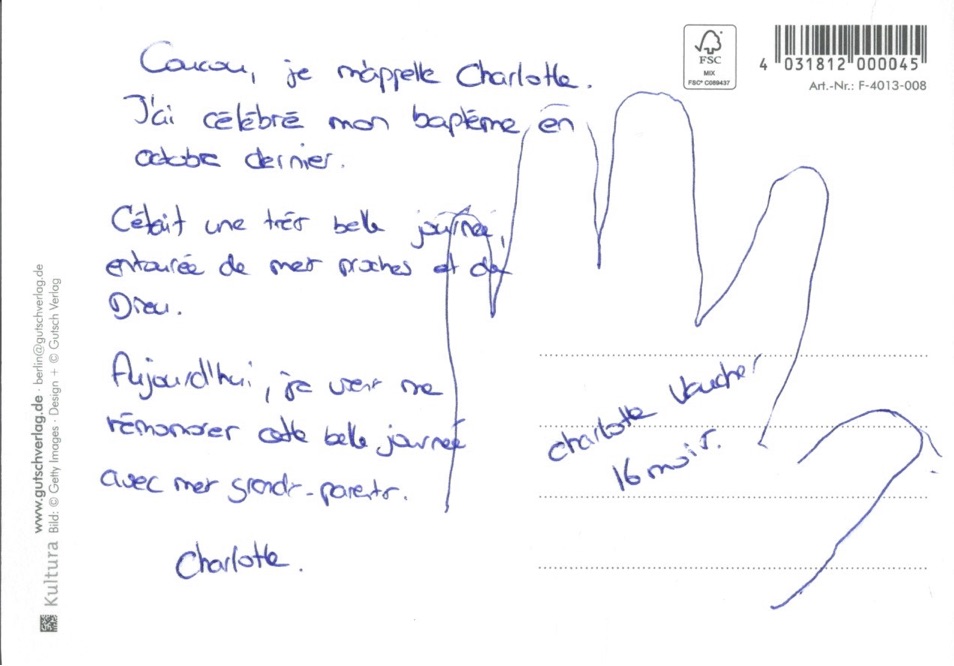 Coucou, je m'appelle Charlotte.
J'ai célébré mon baptême en
octobre dernier.
C'était une très belle journée,
entourée de mes proches et de
Dieu.
Aujourd'hui, je viens me
rémémorer cette belle journée
avec mes grands-parents.
Charlotte.
Charlotte Vaucher
16 mois.
FSC
MIX
FSC® C089437
4 031812 000045
Art.-Nr.: F-4013-008
www.gutschverlag.de · berlin@gutschverlag.de
Kultura Bild: © Getty Images · Design + © Gutsch Verlag